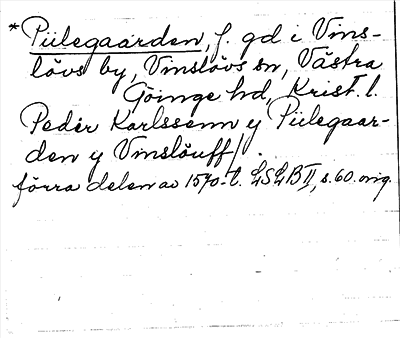 *Piilegaarden, f. gd. i Vins-
lövs by, Vinslövs sn, Västra
Göinge hd, Krist. l.
Pedér Karlssenn y Piilegaar-
den y Vinslöuff/.
förra delen av 1570-t. LSLB II, s. 60. orig.